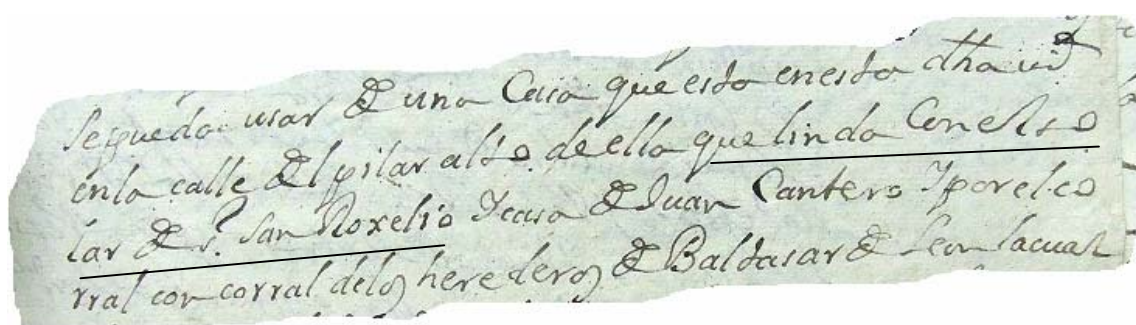 sepueda usar de una Casa que esta enesta dha uª
enla calle del pilar alto de ella que linda Con el so
lar de sr. San Roxelio Y casa de Juan Cantero Y por el co
rral con corral delos herederos de Baltasar de Leon la cual